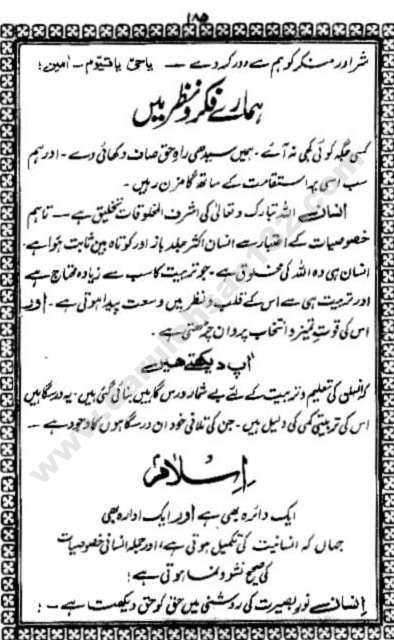 ۱۸۵
شر اور منکر کو ہم سے دور کر دے — یا حیّ یا قیّوم - آمین؛
ہمارے فکر و نظر میں
کسی جگہ کوئی کجی نہ آئے - ہمیں سیدھی راہِ حق صاف دکھائی دے - اور ہم
سب اسی پر استقامت کے ساتھ گامزن رہیں -
انسان اللہ تبارک و تعالیٰ کی اشرف المخلوقات تخلیق ہے — تاہم
خصوصیات کے اعتبار سے انسان اکثر جلد باز اور کوتاہ بین ثابت ہوا ہے -
انسان ہی وہ اللہ کی مخلوق ہے - جو تربیت کا سب سے زیادہ محتاج ہے
اور تربیت ہی سے اس کے قلب و نظر میں وسعت پیدا ہوتی ہے - اور
اس کی قوتِ تمیز و انتخاب پروان چڑھتی ہے -
آپ دیکھتے ہیں
کہ انسان کی تعلیم و تربیت کے لئے بے شمار درس گاہیں بنائی گئی ہیں - یہ درسگاہیں
اس کی تربیتی کمی کی دلیل ہیں - جن کی تلافی خود ان درسگاہوں کا وجود ہے —
اِسلام
ایک دائرہ بھی ہے اور ایک ادارہ بھی
جہاں کہ انسانیت کی تکمیل ہوتی ہے، اور جملہ انسانی خصوصیات
کی صحیح نشو و نما ہوتی ہے؛
انسان نورِ بصیرت کی روشنی میں حق کو حق دیکھتا ہے - ؛